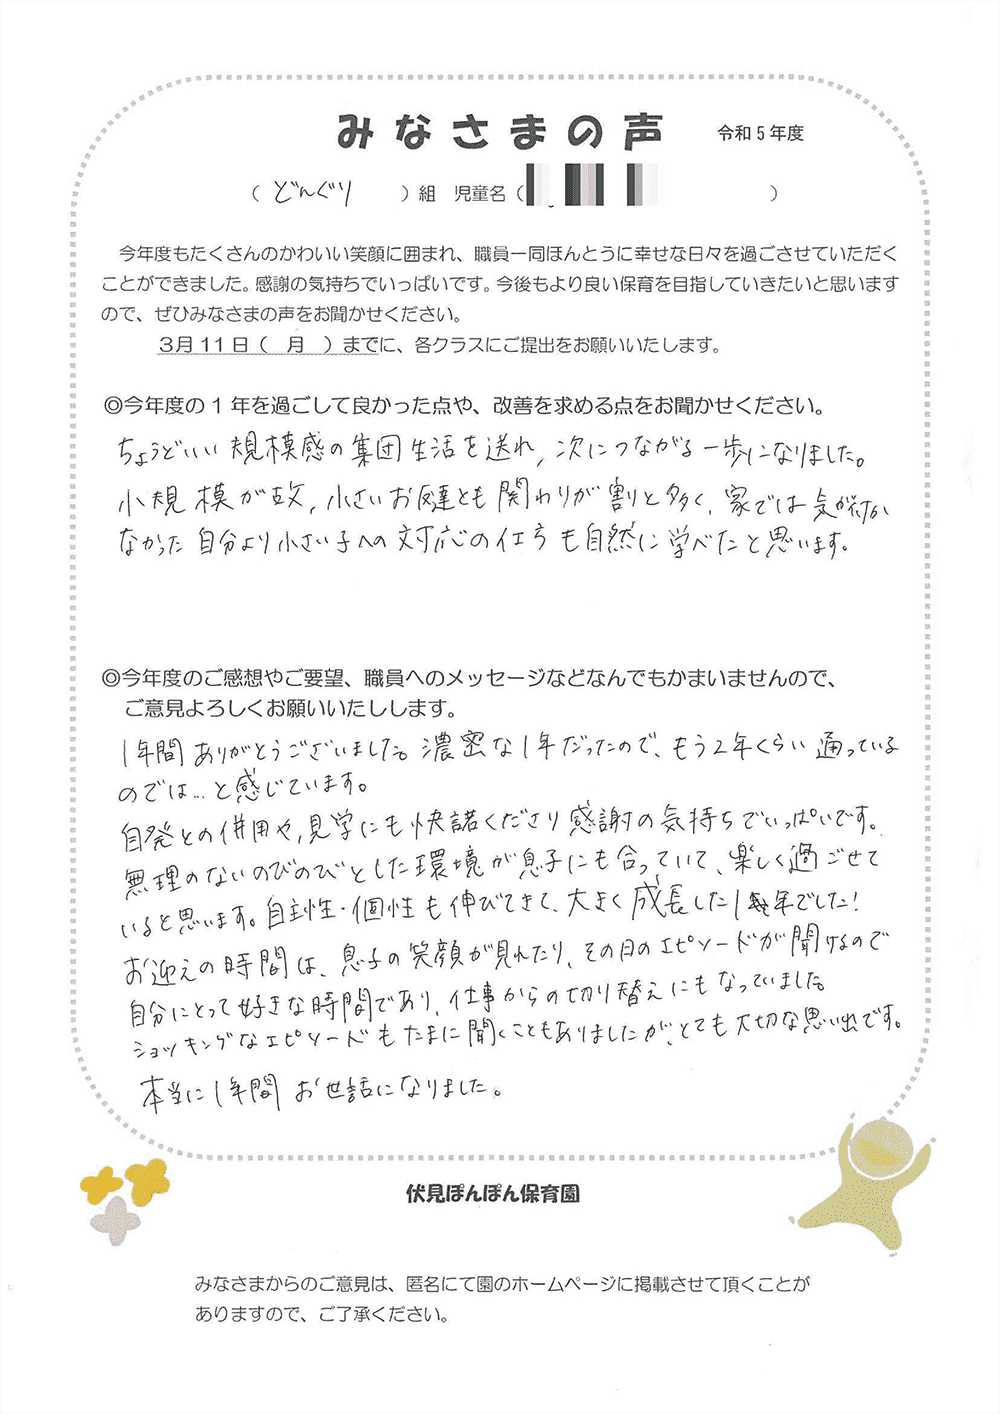 みなさまの声 令和5年度
（どんぐり）組 児童名（ ）
今年度もたくさんのかわいい笑顔に囲まれ、職員一同ほんとうに幸せな日々を過ごさせていただく
ことができました。感謝の気持ちでいっぱいです。今後もより良い保育を目指していきたいと思います
ので、ぜひみなさまの声をお聞かせください。
3月11日（ 月 ）までに、各クラスにご提出をお願いいたします。
◎今年度の1年を過ごして良かった点や、改善を求める点をお聞かせください。
ちょうどいい規模感の集団生活を送れ、次につながる一歩になりました。
小規模が故、小さいお友達とも関わりが割と多く、家では気が付か
なかった自分より小さい子への対応の仕方も自然に学べたと思います。
◎今年度のご感想やご要望、職員へのメッセージなどなんでもかまいませんので、
ご意見よろしくお願いいたしします。
1年間ありがとうございました。濃密な1年だったので、もう2年くらい通っている
のでは…と感じています。
自発との併用や、見学にも快諾くださり感謝の気持ちでいっぱいです。
無理のないのびのびとした環境が息子にも合っていて、楽しく過ごせて
いると思います。自主性・個性も伸びてきて、大きく成長した1年でした!
お迎えの時間は、息子の笑顔が見れたり、その日のエピソードが聞けるので
自分にとって好きな時間であり、仕事からの切り替えにもなっていました。
ショッキングなエピソードもたまに聞くこともありましたが、とても大切な思い出です。
本当に1年間お世話になりました。
伏見ぽんぽん保育園
みなさまからのご意見は、匿名にて園のホームページに掲載させて頂くことが
ありますので、ご了承ください。